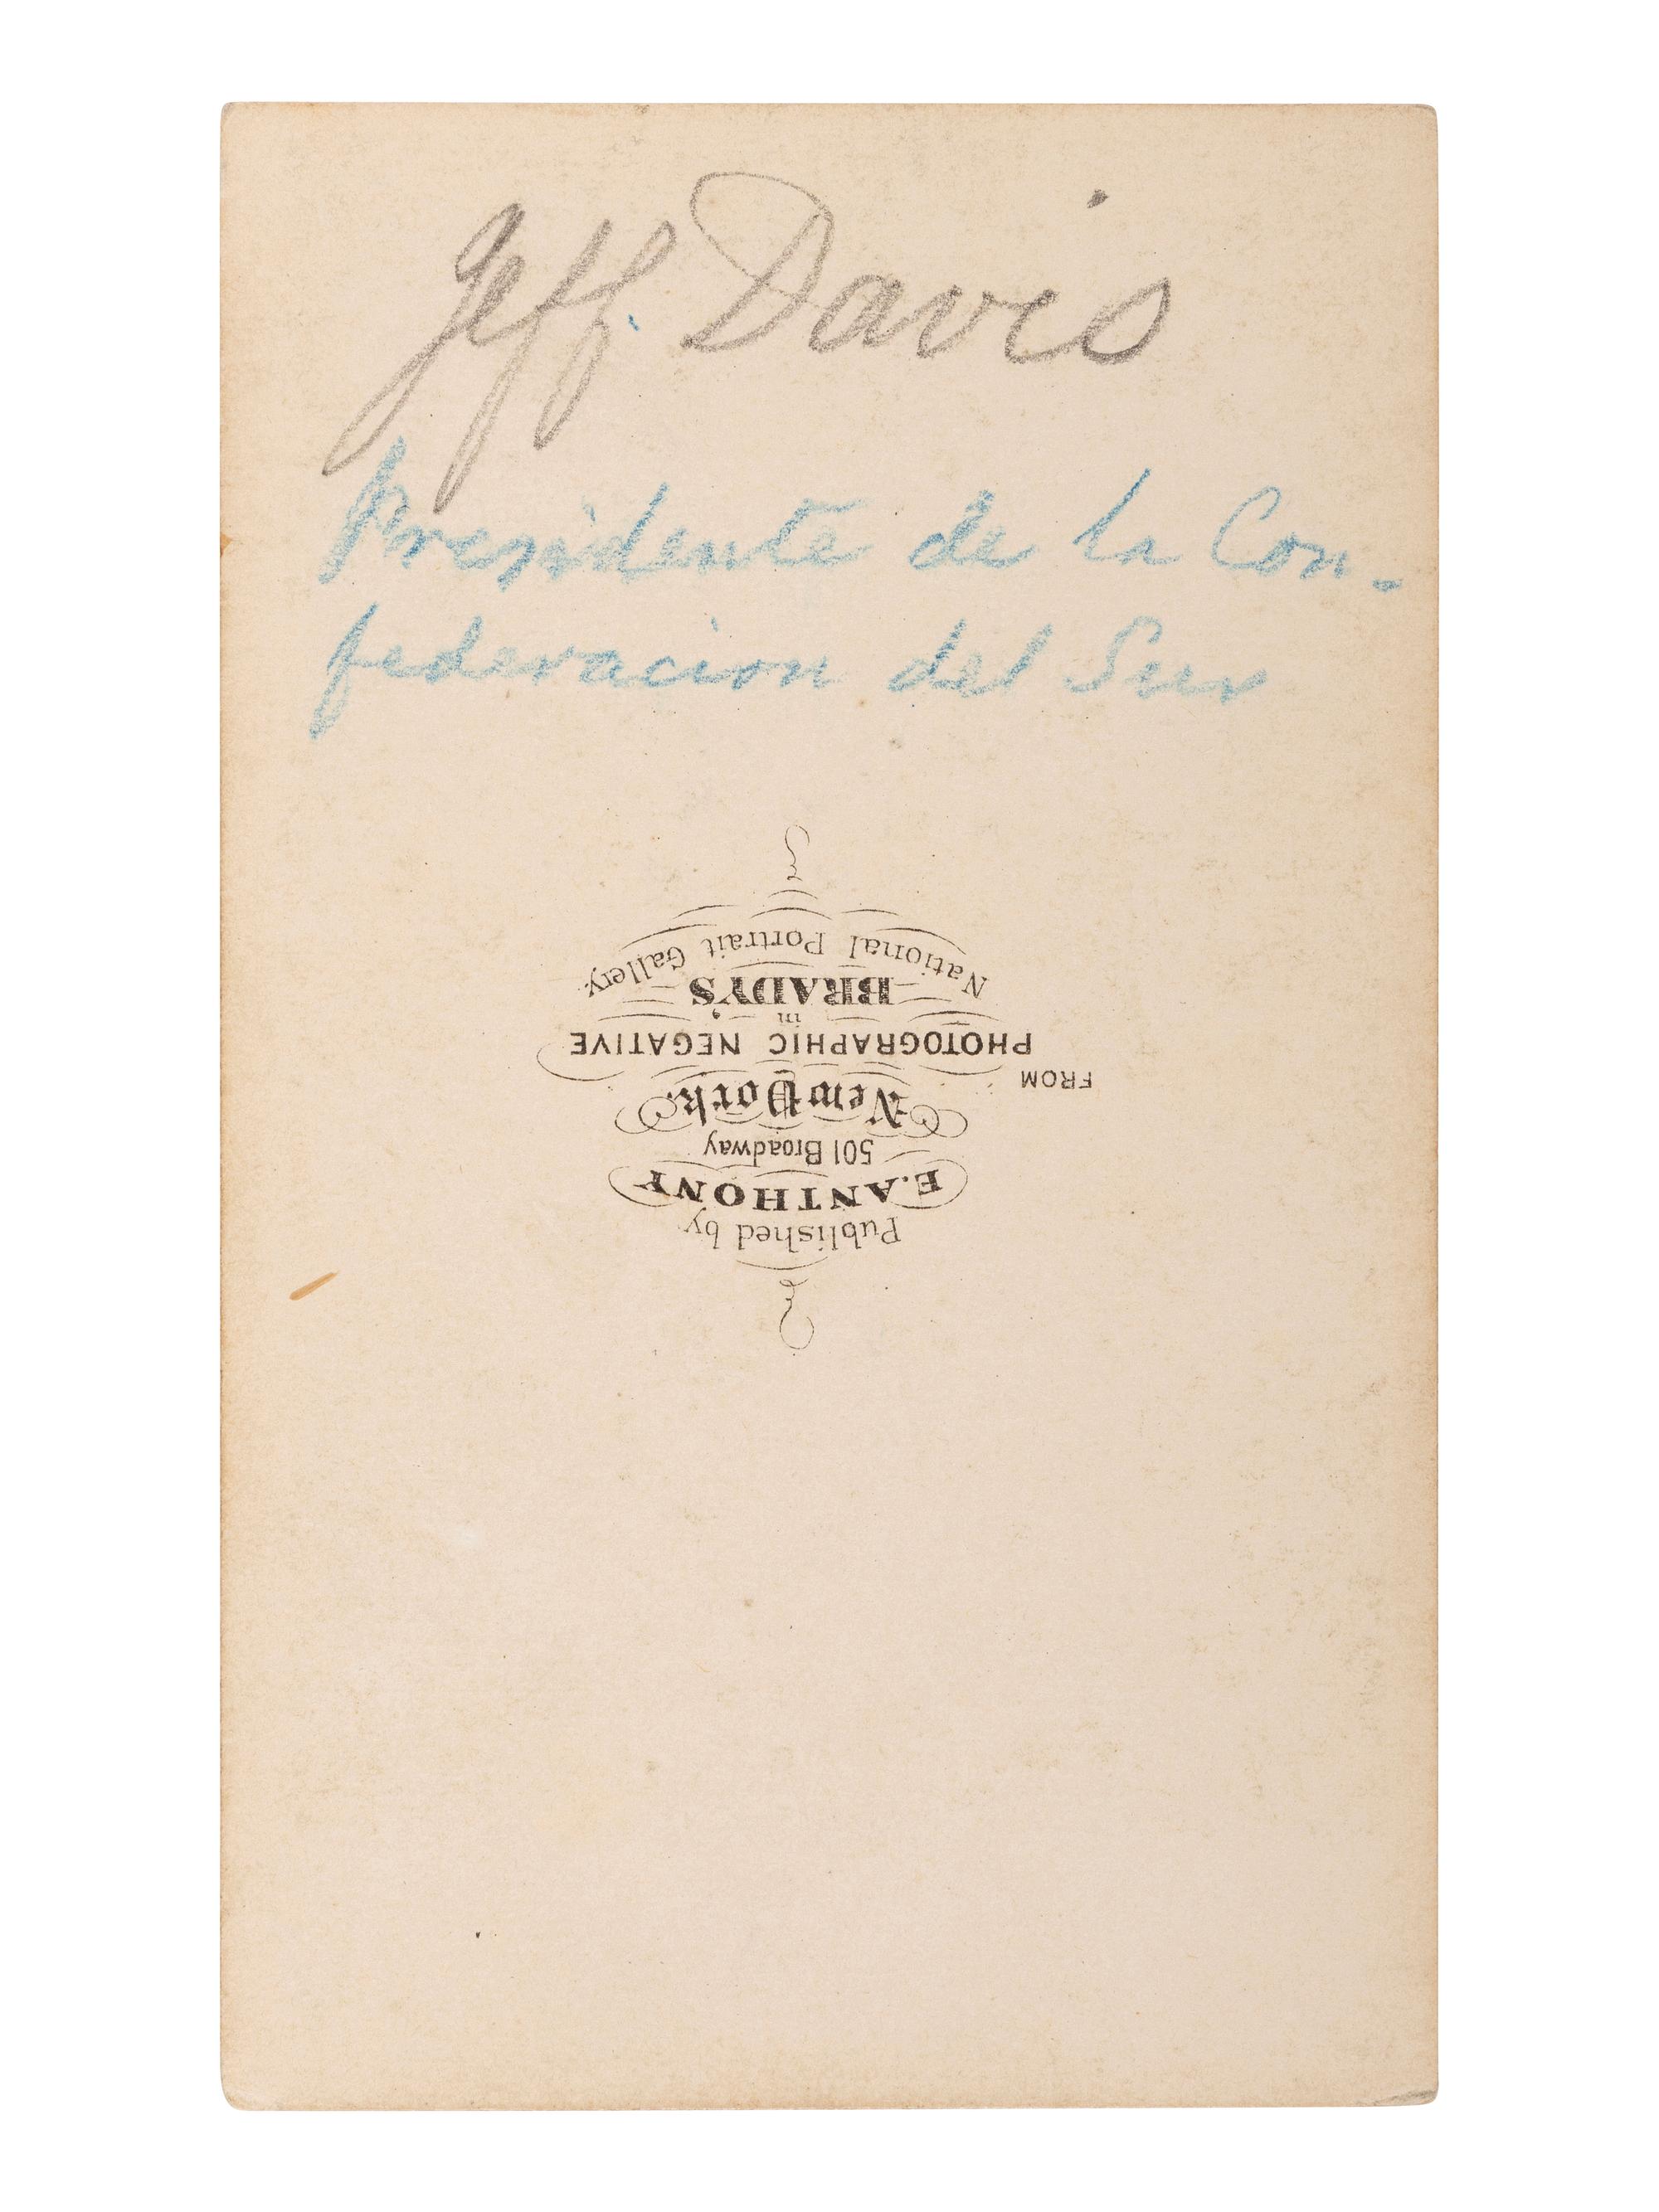 Jeff. Davis
Presidente de la Con-
federacion del Sur
Published by
E. ANTHONY
501 Broadway
New York.
FROM
PHOTOGRAPHIC NEGATIVE
in
BRADY'S
National Portrait Gallery.